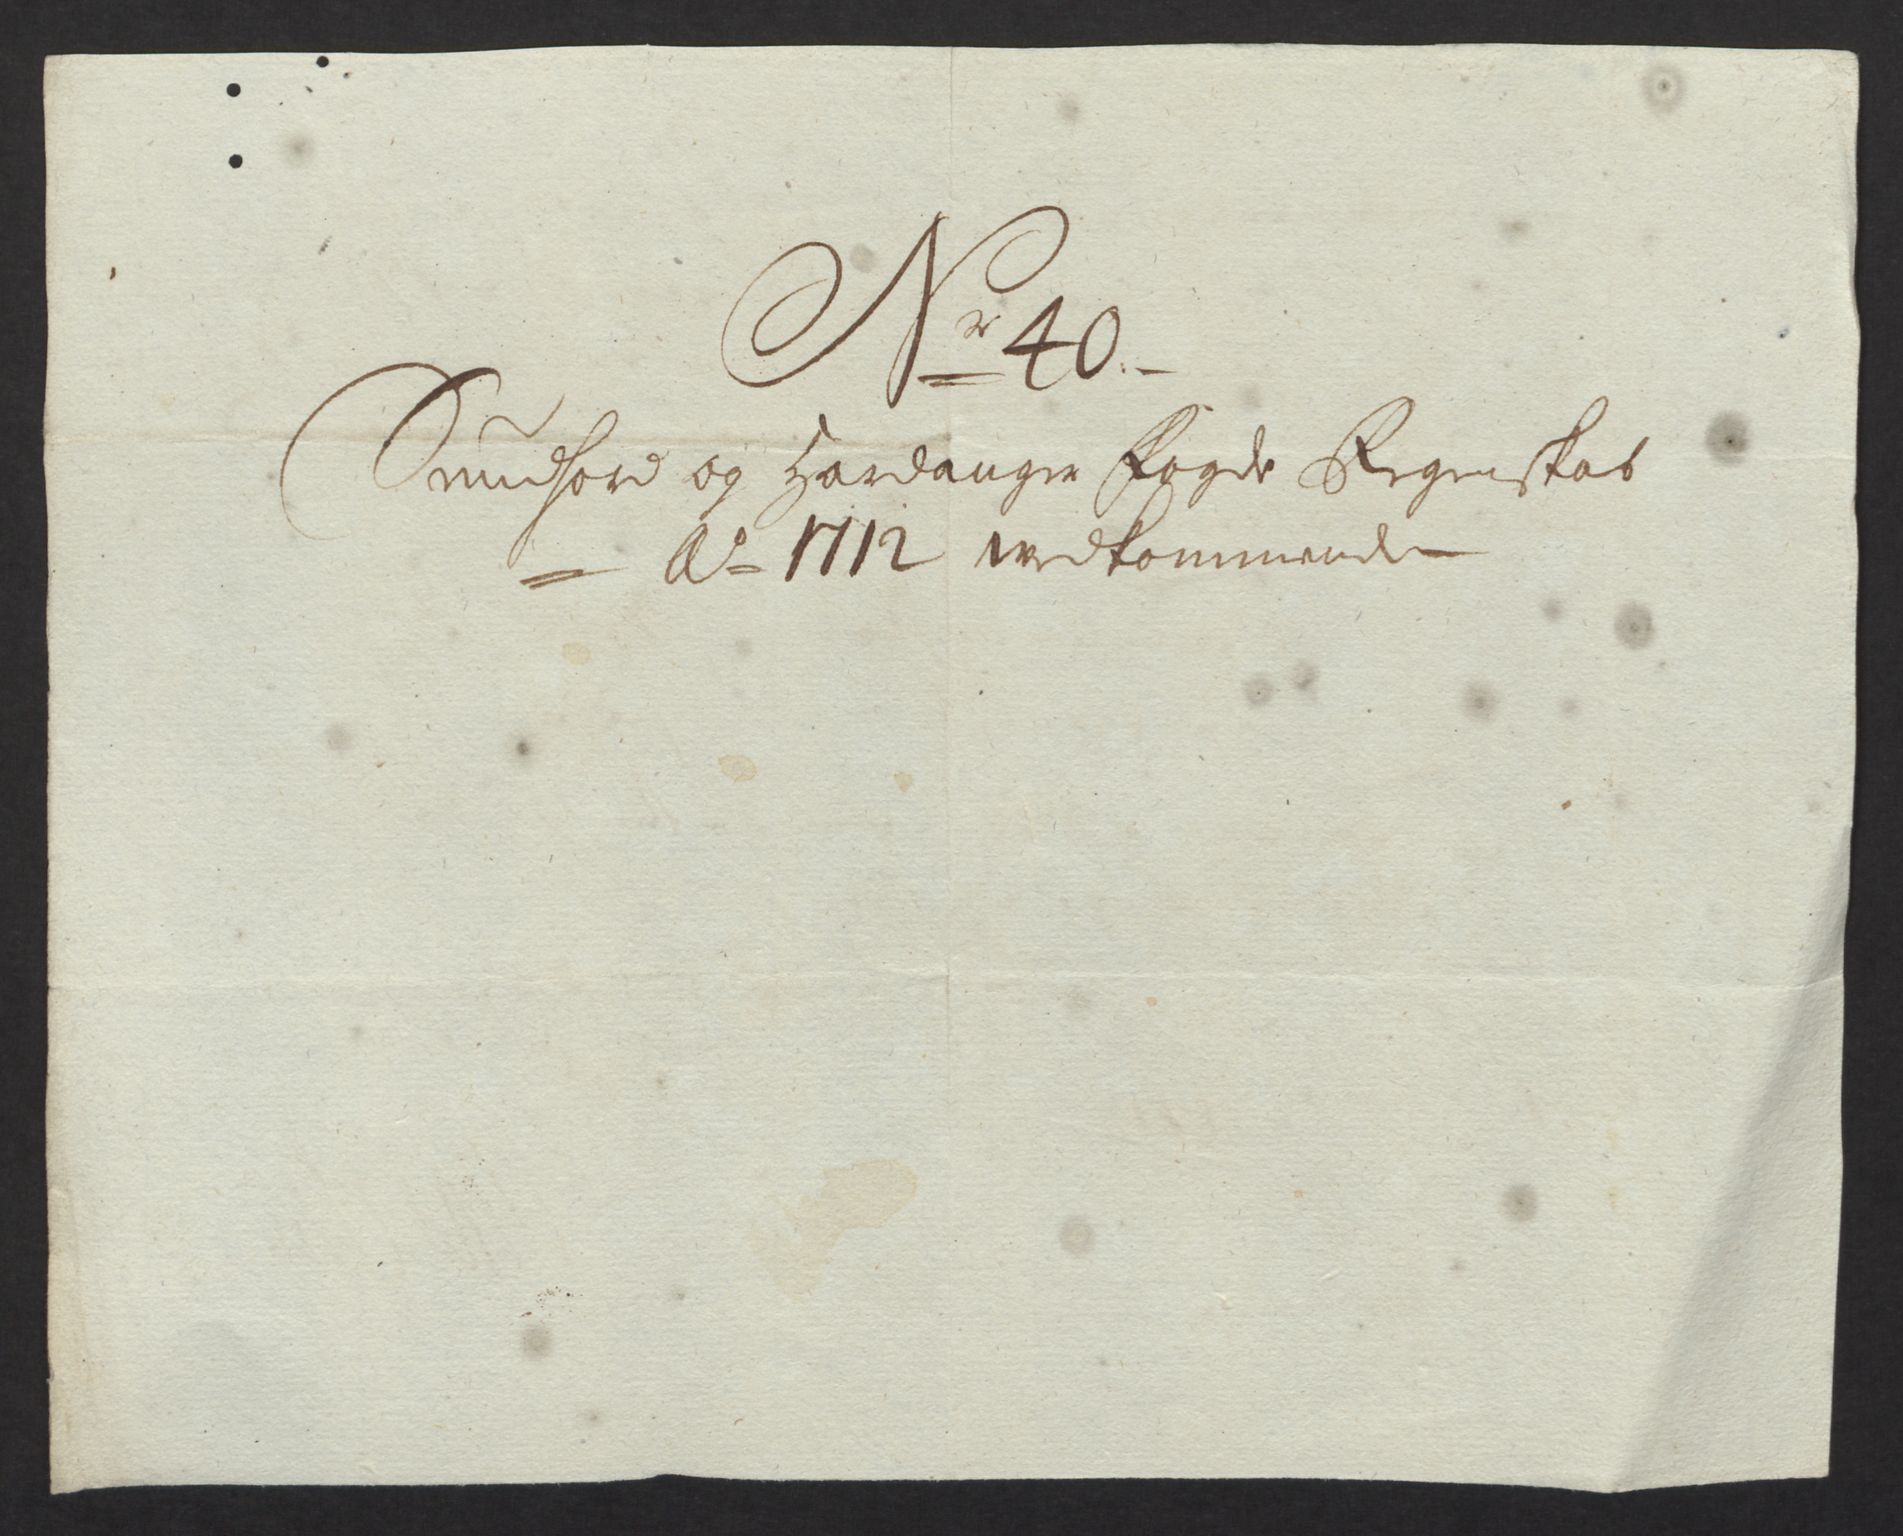 Nr 40.
Sundhord og Hardanger Fogde Regenskab
Ao 1712 vedkommende